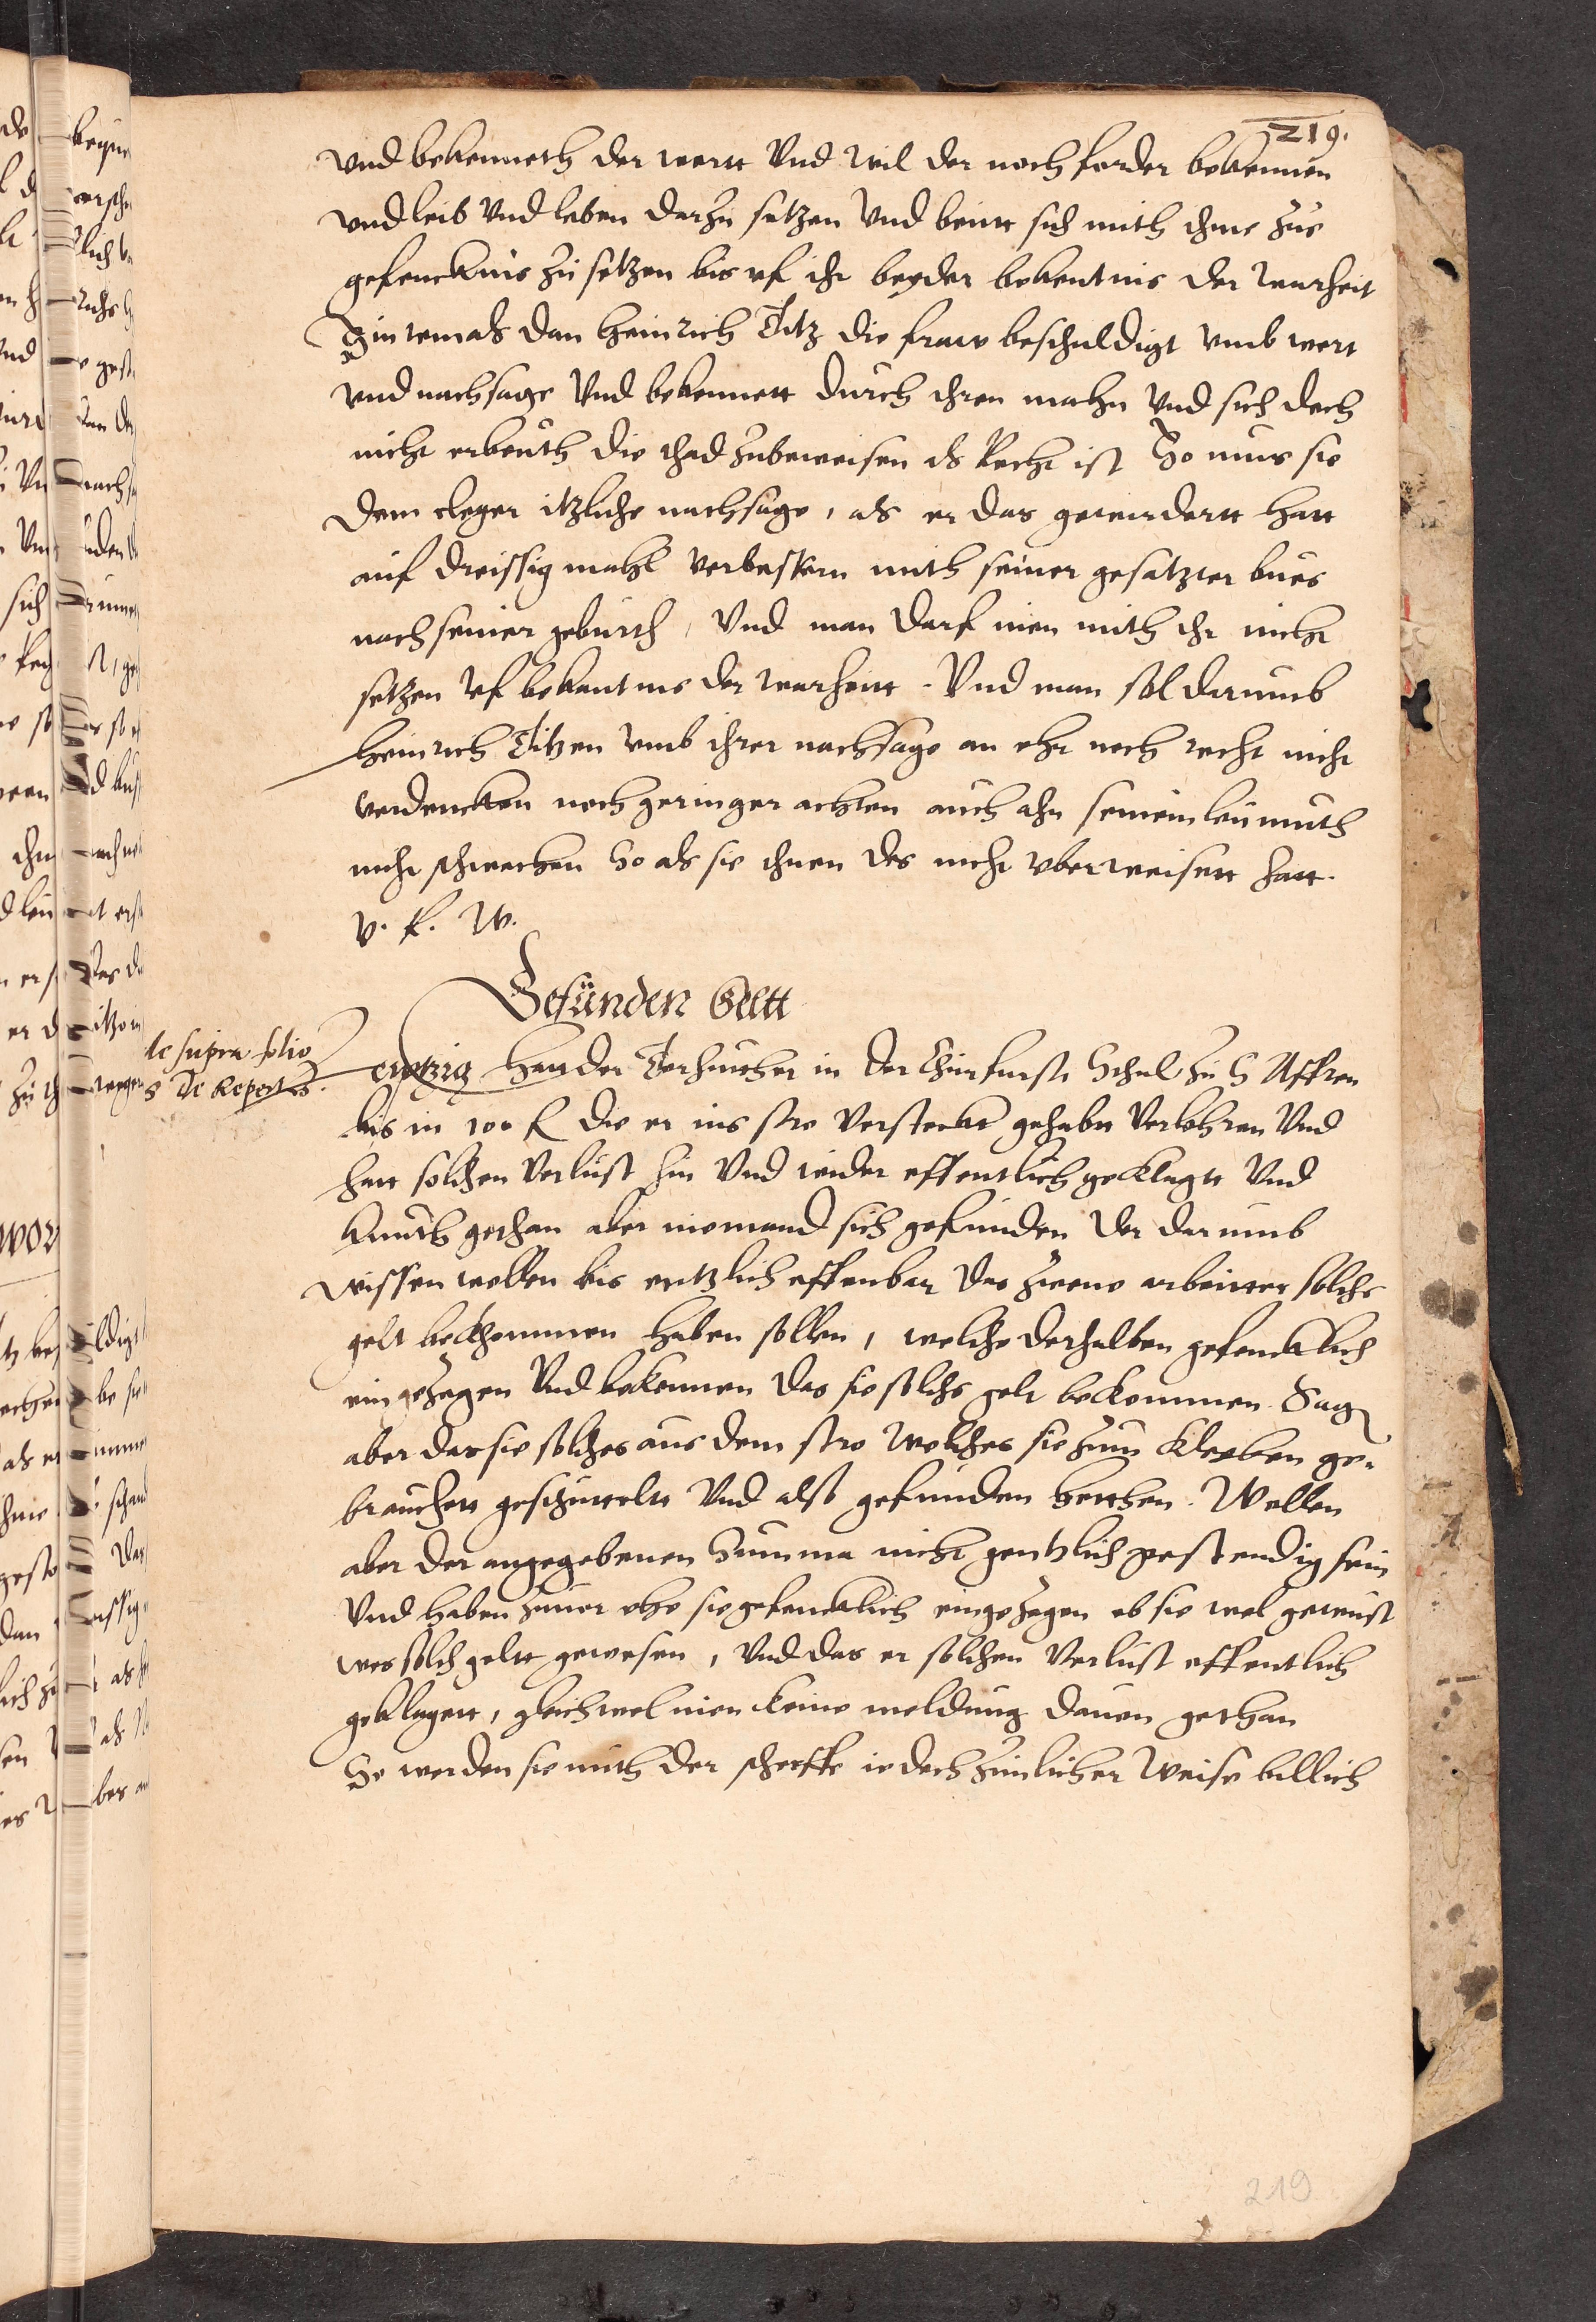 219.
vnd bekenneth der wortt Vnd wil der noch forder bekennen
vnd leib Vnd leben darzu setzen Vnd beutt sich mith ihme zur
gefencknis zu setzen bis vf ihr beyder bekentnis der warheit
Sintemals dan Heinrich Titz die fraw beschuldigt vmb wort
vnd nachsage Vnd bekennett durch ihren mahn Vnd sich doch
nicht erbeuth die thad zubeweisen als Recht ist So mus sie
dem cleger itzliche nachsage, als er das gewirdertt hatt
auf dreissig mahl verbessern mith seiner gesatzter bues
nach seiner geburth, Vnd man darf inen mith ihr nicht
setzen vf bekantnis der warheitt. Vnd man sol darumb
Heinrich Titzen vmb ihrer nachsage an ehr noch recht nicht
verdencken noch geringer achten auch ahn seinem leumuth
nicht schwechen So als sie ihnen des nicht vberweisett hatt.
V. R. W.
Gefunden Geltt
de supra folio
de Repertis.
Leiptzig Hatt der in der Churfurst Schul zu S Affren
bis in 100 fl die er ins stro versteckt gehabtt Verlohren Vnd
hatt solchen Verlust hin Vnd wider offentlich geklagtt Vnd
kunth gethan aber niemand sich gefunden der darumb
wissen wollen bis entzlich offenbar das zweene arbeitter solchs
gelt bekhommen haben sollen, welche derhalben gefencklich
eingezogen Vnd bekennen das sie solchs gelt bekommen. Sagen
aber das sie solches aus dem stro welches sie zum kleyben ge-
brauchett geschuttelt Vnd also gefunden hetthen. Wollen
aber der angegebenen Summa nicht gentzlich gestendig sein
Vnd haben zuuor ehe sie gefencklich eingezogen ob sie wol gewust
wes solch geltt gewesen, Vnd das er solchen Verlust offentlich
geklagett, gleichwol inen keine meldung dauon gethan
So werden sie mith der scherffe iedoch zimlicher weise billich
219